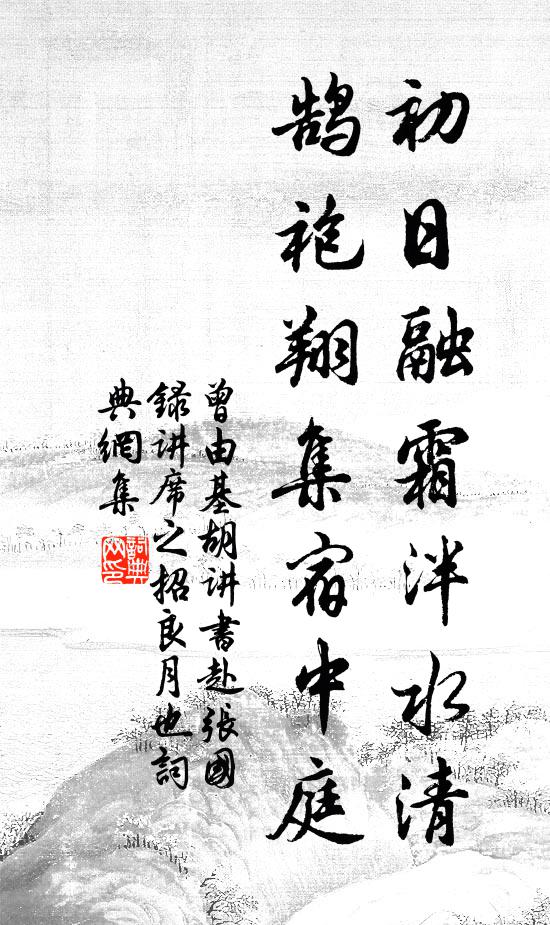 初日融霜泮水清
鹄袍翔集宿中庭
曾由基胡讲书赴張國
録讲席之招良月也詞
典網集
詞典網印